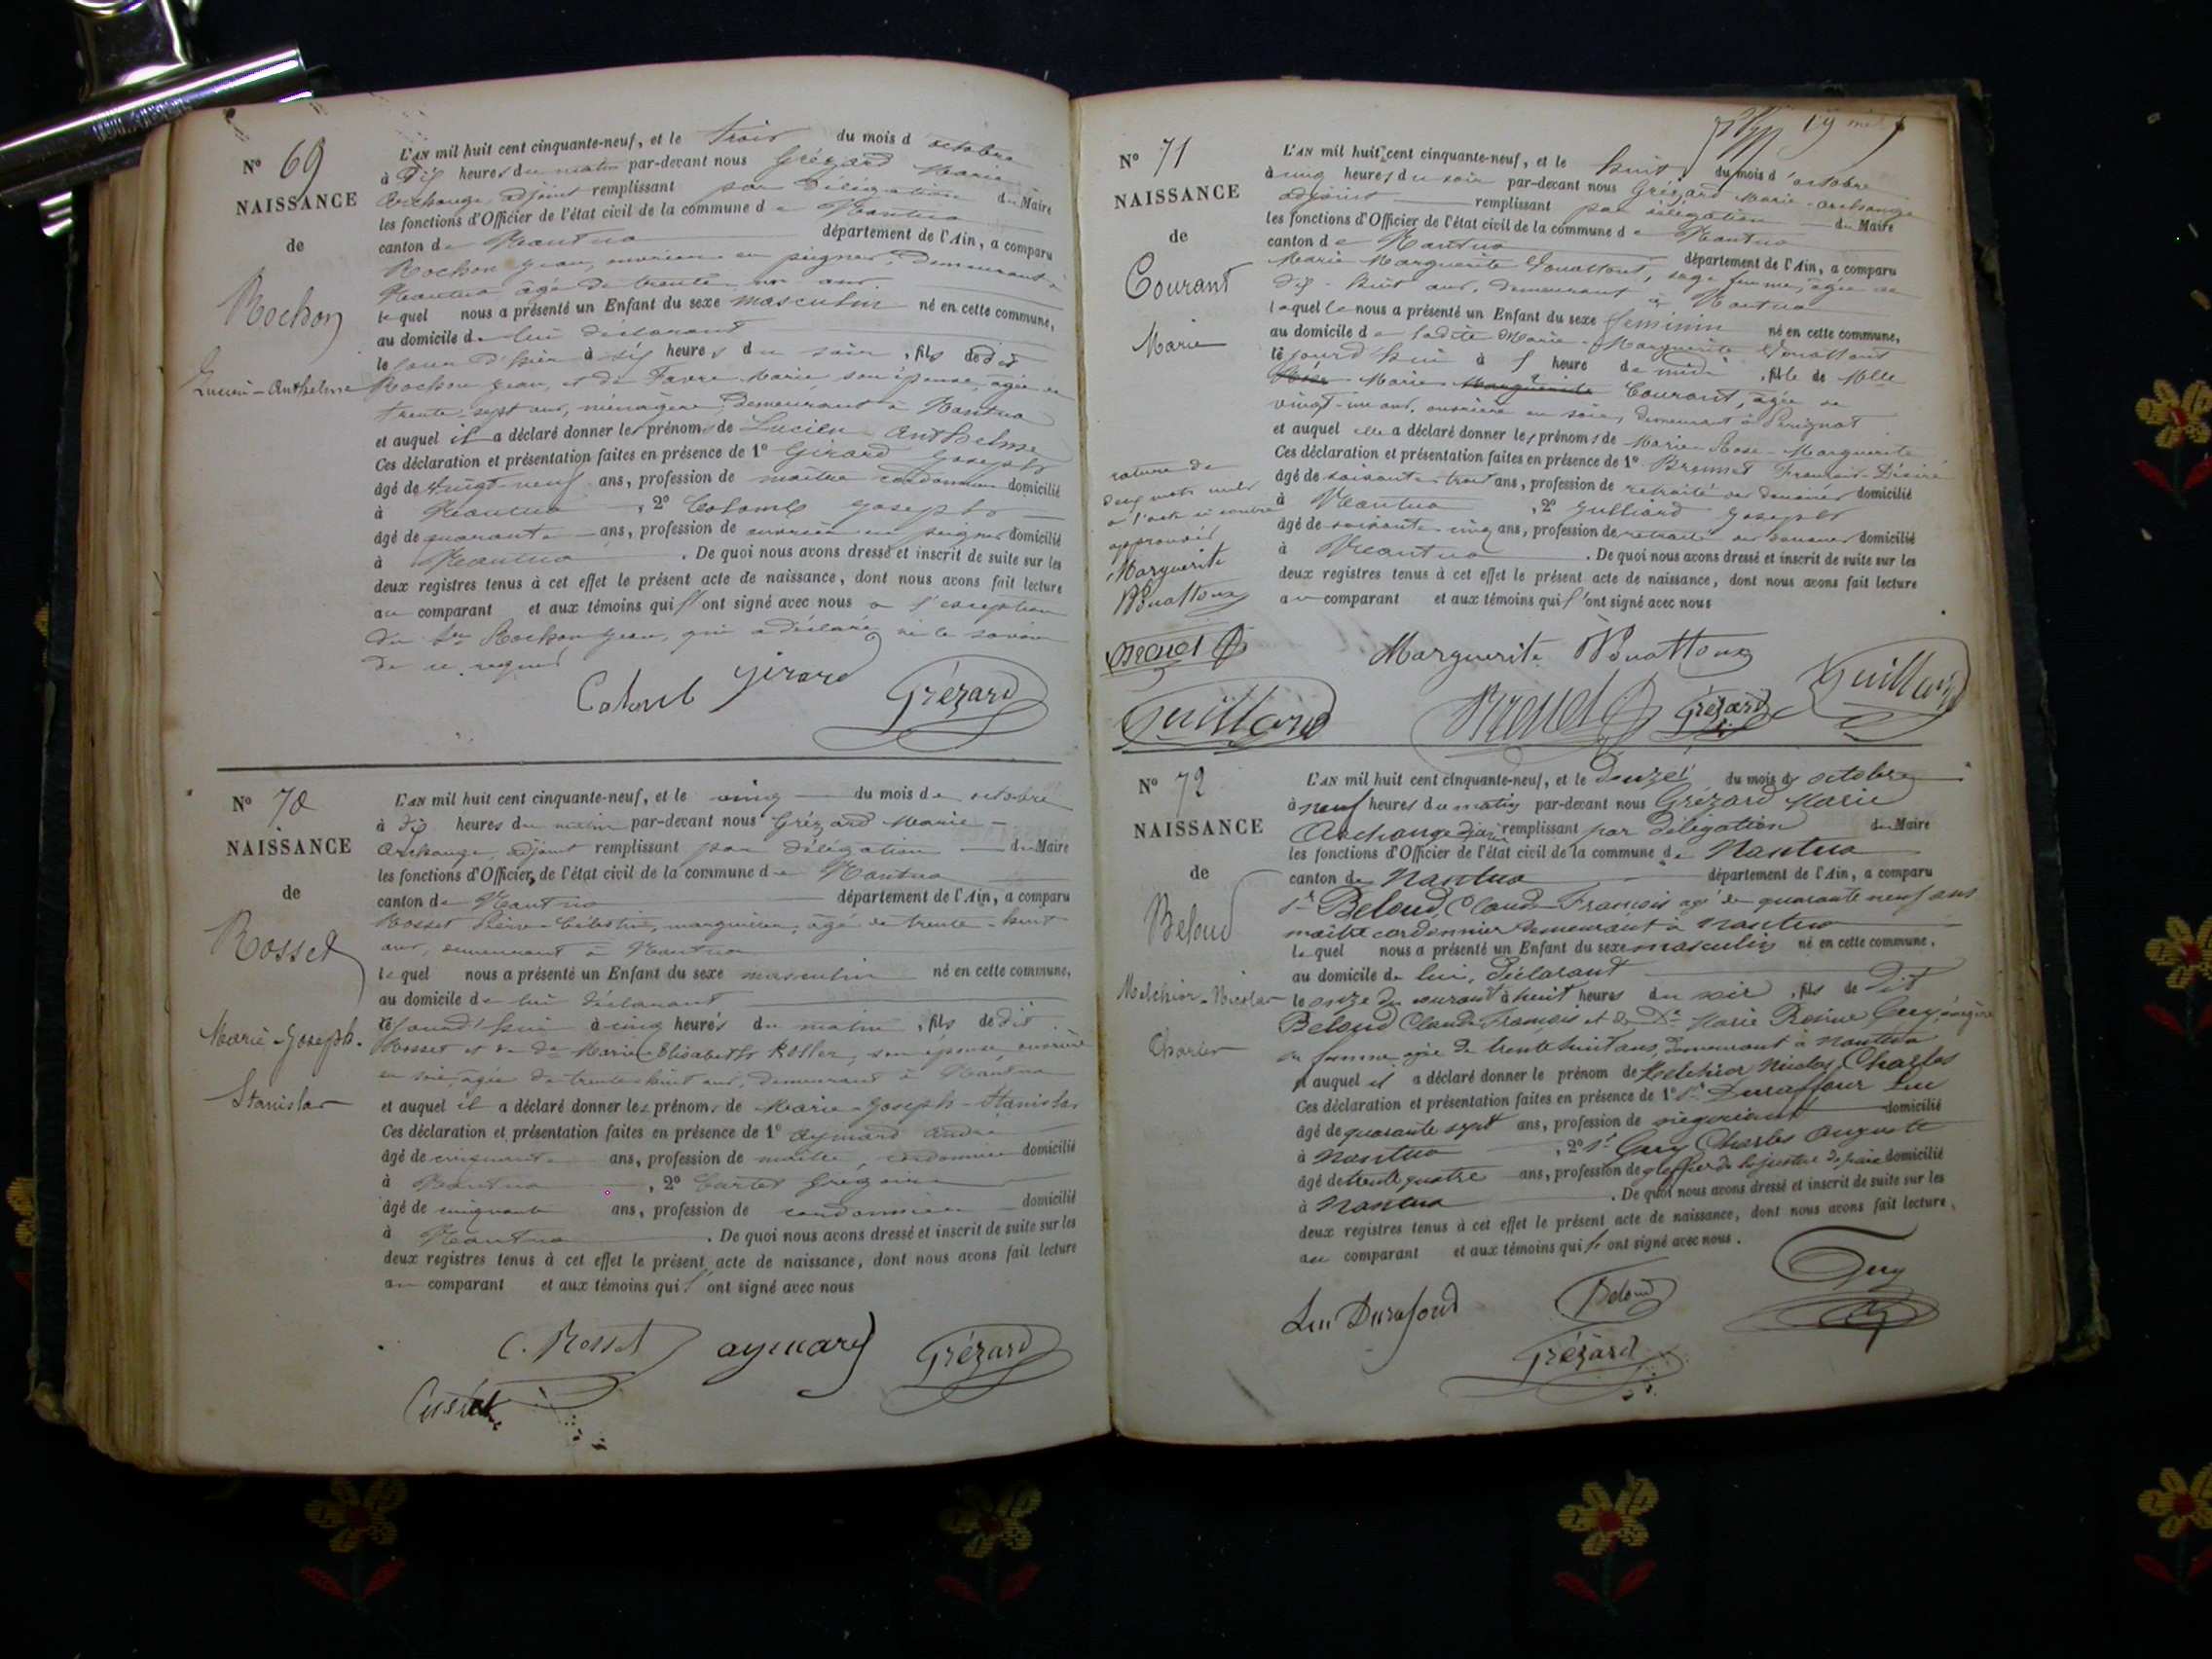 N° 69
NAISSANCE
de
Rochon
Lucien-Anthelme
L'AN mil huit cent cinquante-neuf, et le trois du mois d octobre
à dix heures du matin par-devant nous Grézard Marie
Archange, adjoint remplissant par délégation du Maire
les fonctions d'Officier de l'état civil de la commune de Nantua
canton de Nantua département de l'Ain, a comparu
Rochon Jean, ouvrier en peignes, demeurant à
Nantua âgé de trente ans
lequel nous a présenté un Enfant du sexe masculin né en cette commune,
au domicile de lui déclarant
le jour d'hier à six heures du soir, fils de dit
Rochon Jean, et de Favre Marie, son épouse, âgée de
trente-sept ans, ménagère, demeurant à Nantua
et auquel il a déclaré donner les prénoms de Lucien Anthelme
Ces déclaration et présentation faites en présence de 1° Girard Joseph
âgé de vingt-neuf ans, profession de maître cordonnier domicilié
à Nantua, 2° Colomb Joseph
âgé de quarante ans, profession de ouvrier en peignes domicilié
à Nantua. De quoi nous avons dressé et inscrit de suite sur les
deux registres tenus à cet effet le présent acte de naissance, dont nous avons fait lecture
au comparant et aux témoins qui l'ont signé avec nous à l'exception
du Sr Rochon Jean, qui a déclaré ne le savoir
de ce requis
Colomb Girard Grézard
N° 70
NAISSANCE
de
Rosset
Marie-Joseph-
Stanislas
L'AN mil huit cent cinquante-neuf, et le cinq du mois de octobre
à dix heures du matin par-devant nous Grézard Marie-
Archange, adjoint remplissant par délégation du Maire
les fonctions d'Officier de l'état civil de la commune de Nantua
canton de Nantua département de l'Ain, a comparu
Rosset Pierre Célestin, marguillier, âgé de trente-huit
ans, demeurant à Nantua
lequel nous a présenté un Enfant du sexe masculin né en cette commune,
au domicile de lui déclarant
cejourd'hui à cinq heures du matin, fils de dit
Rosset et de De Marie Elisabeth Roller, son épouse, ouvrière
en soie, âgée de trente huit ans, demeurant à Nantua
et auquel il a déclaré donner les prénoms de Marie-Joseph-Stanislas
Ces déclaration et présentation faites en présence de 1° Aymard André
âgé de cinquante ans, profession de maître cordonnier domicilié
à Nantua, 2° Grégoire
âgé de cinquante ans, profession de cordonnier domicilié
à Nantua. De quoi nous avons dressé et inscrit de suite sur les
deux registres tenus à cet effet le présent acte de naissance, dont nous avons fait lecture
au comparant et aux témoins qui l'ont signé avec nous
C. Rosset aymard Grézard
19
N° 71
NAISSANCE
de
Courant
Marie
rature de
deux mots nuls
à l'acte ci contre
approuvée
Marguerite
L'AN mil huit cent cinquante-neuf, et le huit du mois d'octobre
à cinq heures du soir par-devant nous Grézard Marie-Archange
adjoint remplissant par délégation du Maire
les fonctions d'Officier de l'état civil de la commune de Nantua
canton de Nantua département de l'Ain, a comparu
Marie Marguerite, sage femme, âgée de
dix-huit ans, demeurant à Nantua
laquelle nous a présenté un Enfant du sexe féminin né en cette commune,
au domicile de ladite Marie-Marguerite
cejourd'hui à 1 heure de midi, fille de Melle
Marie Marguerite Courant, âgée de
vingt-un ans, ouvrière en soie, demeurant à Perignat
et auquel elle a déclaré donner les prénoms de Marie-Rose-Marguerite
Ces déclaration et présentation faites en présence de 1° François-Désiré
âgé de soixante-trois ans, profession de retraité des douanes domicilié
à Nantua, 2° Guilliard Joseph
âgé de soixante-cinq ans, profession de retraité des douanes domicilié
à Nantua. De quoi nous avons dressé et inscrit de suite sur les
deux registres tenus à cet effet le présent acte de naissance, dont nous avons fait lecture
au comparant et aux témoins qui l'ont signé avec nous
Marguerite
Grézard
N° 72
NAISSANCE
de
Beloud
Melchior-Nicolas
Charles
L'AN mil huit cent cinquante-neuf, et le Douze du mois de octobre
à neuf heures du matin par-devant nous Grézard Marie
Archange adjoint remplissant par délégation du Maire
les fonctions d'Officier de l'état civil de la commune de Nantua
canton de Nantua département de l'Ain, a comparu
Sr Beloud Claude François agé de quarante neuf ans
maître cordonnier demeurant à Nantua
lequel nous a présenté un Enfant du sexe masculin né en cette commune,
au domicile de lui, déclarant
le onze du courant à huit heures du soir, fils de dit
Beloud Claude François et de De Marie Reine Guy, ménagère
sa femme agée de trente huit ans, demeurant à Nantua
et auquel il a déclaré donner le prénom de Melchior Nicolas Charles
Ces déclaration et présentation faites en présence de 1° Sr Durafour Luc
âgé de quarante sept ans, profession de négociant domicilié
à Nantua, 2° Sr Guy Charles Auguste
âgé de trente quatre ans, profession de greffier de la justice de paix domicilié
à Nantua. De quoi nous avons dressé et inscrit de suite sur les
deux registres tenus à cet effet le présent acte de naissance, dont nous avons fait lecture
au comparant et aux témoins qui l'ont signé avec nous.
Luc Durafour Beloud Guy
Grézard